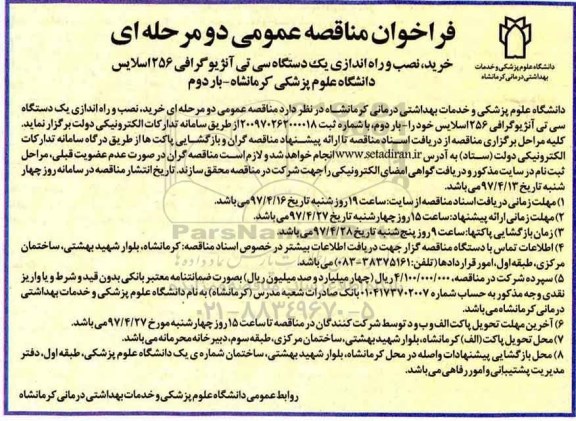 دانشگاه علوم پزشکی و خدمات
بهداشتی درمانی کرمانشاه
فراخوان مناقصه عمومی دو مرحله ای
خرید، نصب و راه اندازی یک دستگاه سی تی آنژیوگرافی ۲۵۶ اسلایس
دانشگاه علوم پزشکی کرمانشاه-بار دوم
دانشگاه علوم پزشکی و خدمات بهداشتی درمانی کرمانشاه در نظر دارد مناقصه عمومی دو مرحله ای خرید، نصب و راه اندازی یک دستگاه
سی تی آنژیوگرافی ۲۵۶ اسلایس خود را -بار دوم با شماره ثبت ۲۰۰۹۷۰۲۶۲۰۰۰۰۱۸ از طریق سامانه تدارکات الکترونیکی دولت برگزار نماید.
کلیه مراحل برگزاری مناقصه از دریافت اسناد مناقصه تا ارائه پیشنهاد مناقصه گران و بازگشایی پاکت ها از طریق درگاه سامانه تدارکات
الکترونیکی دولت (ستاد) به آدرس www.setadiran.ir انجام خواهد شد و لازم است مناقصه گران در صورت عدم عضویت قبلی، مراحل
ثبت نام در سایت مذکور و دریافت گواهی امضای الکترونیکی را جهت شرکت در مناقصه محقق سازند. تاریخ انتشار مناقصه در سامانه روز چهار
شنبه تاریخ ۹۷/۴/۱۳ می باشد.
۱) مهلت زمانی دریافت اسناد مناقصه از سایت: ساعت ۱۹ روز شنبه تاریخ ۹۷/۴/۱۶ می باشد.
۲) مهلت زمانی ارائه پیشنهاد: ساعت ۱۵ روز چهارشنبه تاریخ ۹۷/۴/۲۷ می باشد.
۳) زمان بازگشایی پاکتها: ساعت ۹ روز پنج شنبه تاریخ ۹۷/۴/۲۸ می باشد.
۴) اطلاعات تماس با دستگاه مناقصه گزار جهت دریافت اطلاعات بیشتر در خصوص اسناد مناقصه: کرمانشاه، بلوار شهید بهشتی، ساختمان
مرکزی، طبقه اول، امور قراردادها (تلفن: ۳۸۳۷۵۱۶۱-۰۸۳) می باشد.
۵) سپرده شرکت در مناقصه، ۴/۱۰۰/۰۰۰/۰۰۰ ریال (چهار میلیارد و صد میلیون ریال) بصورت ضمانتنامه معتبر بانکی بدون قید و شرط و یا واریز
نقدی وجه مذکور به حساب شماره ۰۱۰۴۱۷۳۷۰۲۰۰۷ بانک صادرات شعبه مدرس (کرمانشاه) به نام دانشگاه علوم پزشکی و خدمات بهداشتی
درمانی کرمانشاه می باشد.
۶) آخرین مهلت تحویل پاکت الف و ب و د توسط شرکت کنندگان در مناقصه تا ساعت ۱۵ روز چهارشنبه مورخ ۹۷/۴/۲۷ می باشد.
۷) محل تحویل پاکت (الف) کرمانشاه، بلوار شهید بهشتی، ساختمان مرکزی، طبقه سوم، دبیرخانه محرمانه می باشد.
۸) محل بازگشایی پیشنهادات واصله در محل کرمانشاه، بلوار شهید بهشتی، ساختمان شماره ی یک دانشگاه علوم پزشکی، طبقه اول، دفتر
مدیریت پشتیبانی و امور رفاهی می باشد.
روابط عمومی دانشگاه علوم پزشکی و خدمات بهداشتی درمانی کرمانشاه
۰۲۱-۸۸۳۴۹۶۷۰-۵